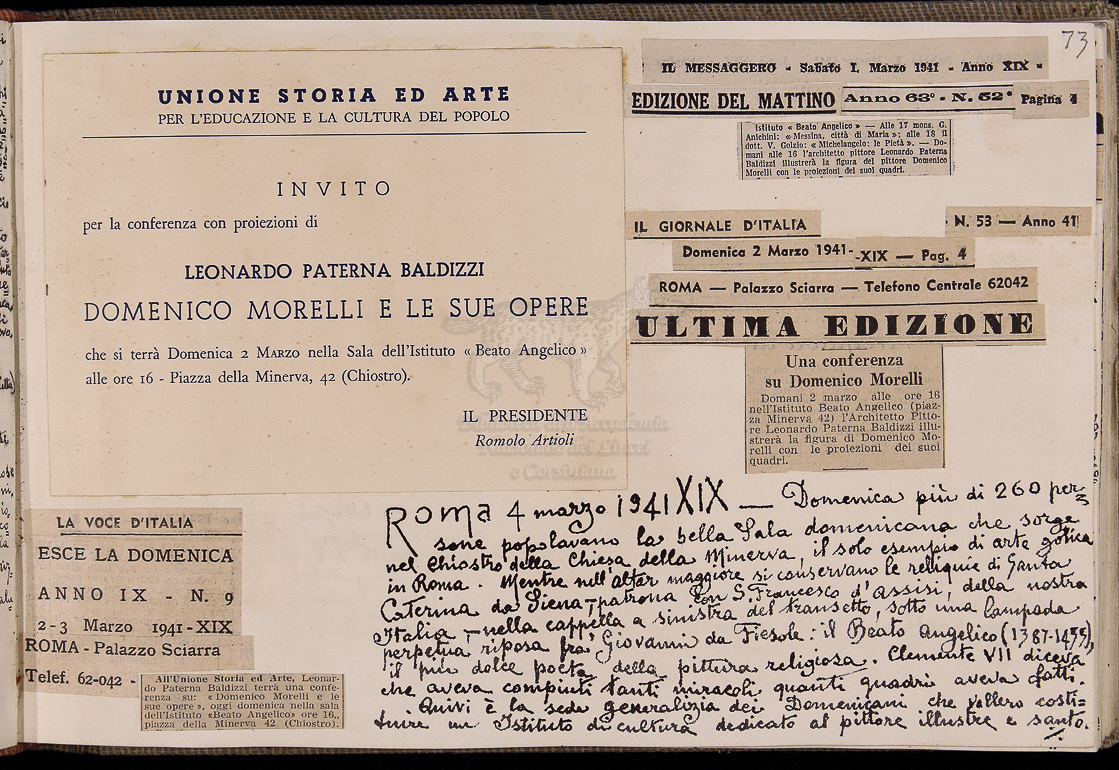 73
UNIONE STORIA ED ARTE
PER L'EDUCAZIONE E LA CULTURA DEL POPOLO
INVITO
per la conferenza con proiezioni di
LEONARDO PATERNA BALDIZZI
DOMENICO MORELLI E LE SUE OPERE
che si terrà Domenica 2 Marzo nella Sala dell'Istituto « Beato Angelico »
alle ore 16 - Piazza della Minerva, 42 (Chiostro).
IL PRESIDENTE
Romolo Artioli
IL MESSAGGERO - Sabato 1, Marzo 1941 - Anno XIX -
EDIZIONE DEL MATTINO Anno 63° - N. 52° Pagina 4
Istituto « Beato Angelico » — Alle 17 mons. G.
Anichini: « Messina, città di Maria »; alle 18 il
dott. V. Golzio: « Michelangelo: le Pietà ». — Do-
mani alle 16 l'architetto pittore Leonardo Paterna
Baldizzi illustrerà la figura del pittore Domenico
Morelli con le proiezioni dei suoi quadri.
IL GIORNALE D'ITALIA N. 53 — Anno 41
Domenica 2 Marzo 1941--XIX — Pag. 4
ROMA — Palazzo Sciarra — Telefono Centrale 62042
ULTIMA EDIZIONE
Una conferenza
su Domenico Morelli
Domani 2 marzo alle ore 16
nell'Istituto Beato Angelico (piaz-
za Minerva 42) l'Architetto Pitto-
re Leonardo Paterna Baldizzi illu-
strerà la figura di Domenico Mo-
relli con le proiezioni dei suoi
quadri.
LA VOCE D'ITALIA
ESCE LA DOMENICA
ANNO IX - N. 9
2-3 Marzo 1941-XIX
ROMA - Palazzo Sciarra
Telef. 62-042 -
All'Unione Storia ed Arte, Leonar-
do Paterna Baldizzi terrà una confe-
renza su: «Domenico Morelli e le
sue opere», oggi domenica nella sala
dell'Istituto «Beato Angelico» ore 16,
piazza della Minerva 42 (Chiostro).
Roma 4 marzo 1941 XIX — Domenica più di 260 per=
sone popolavano la bella Sala domenicana che sorge
nel Chiostro della Chiesa della Minerva, il solo esempio di arte gotica
in Roma. Mentre nell'altar maggiore si conservano le reliquie di Santa
Caterina da Siena — patrona con S. Francesco d'Assisi, della nostra
Italia — nella cappella a sinistra del transetto, sotto una lampada
perpetua riposa fra' Giovanni da Fiesole: il Beato Angelico (1387-1455),
il più dolce poeta della pittura religiosa. Clemente VII diceva
che aveva compiuti tanti miracoli quanti quadri aveva fatti.
Quivi è la sede generalizia dei Domenicani che vollero costi=
tuire un Istituto di cultura dedicato al pittore illustre e santo.
Biblioteca dell'Accademia
Nazionale dei Lincei
e Corsiniana